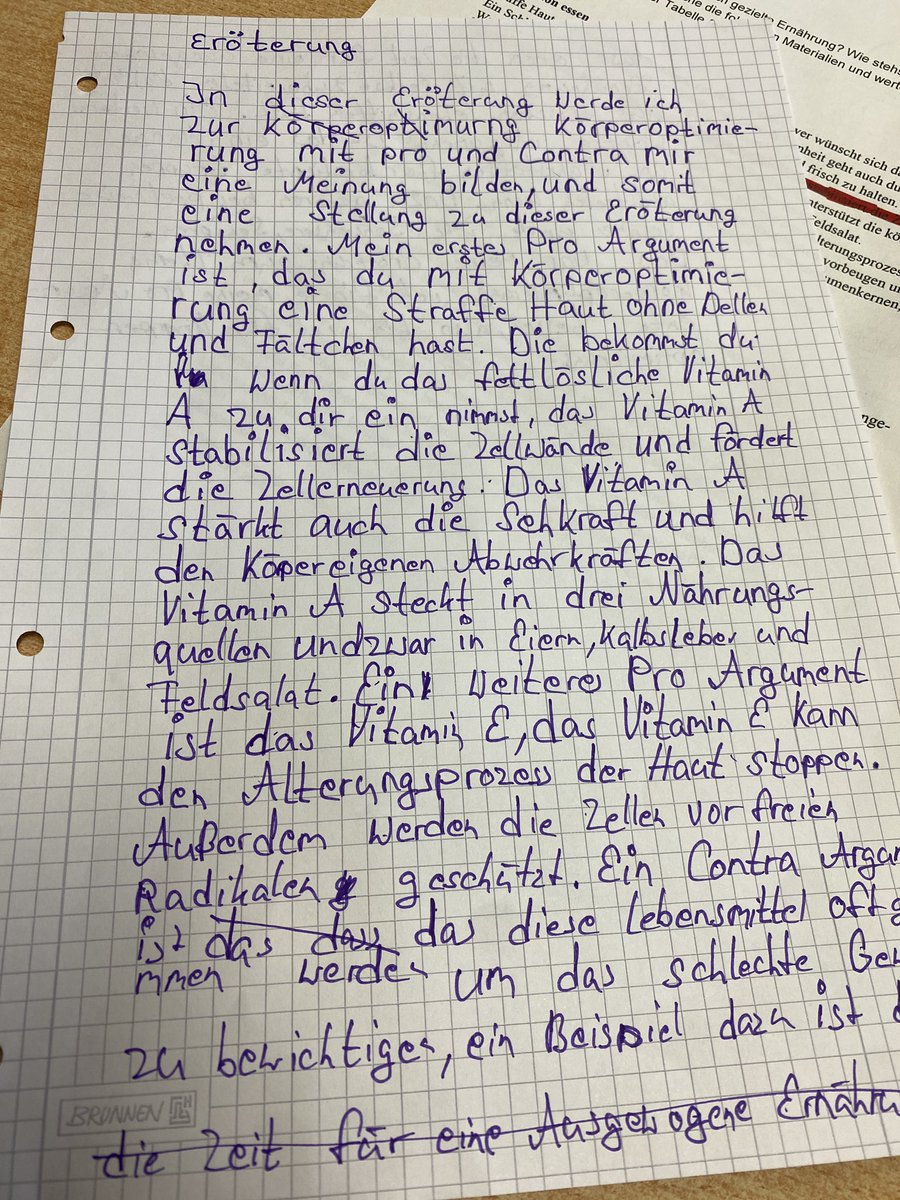 Eröterung
In dieser Eröterung werde ich
zur Körperoptimurng Körperoptimie-
rung mit pro und Contra mir
eine Meinung bilden, und somit
eine Stellung zu dieser Eröterung
nehmen. Mein erstes Pro Argument
ist, das du mit Körperoptimie-
rung eine Straffe Haut ohne Dellen
und Fältchen hast. Die bekommst du
wenn du das fettlösliche Vitamin
A zu dir ein nimmst, das Vitamin A
stabilisiert die Zellwände und fördert
die Zellerneuerung. Das Vitamin A
stärkt auch die Sehkraft und hilft
den Köpereigenen Abwehrkräften. Das
Vitamin A steckt in drei Nahrungs-
quellen undzwar in Eiern, Kalbsleber und
Feldsalat. Ein weiteres Pro Argument
ist das Vitamin E, das Vitamin E kann
den Alterungsprozess der Haut stoppen.
Außerdem werden die Zellen vor freien
Radikalen geschützt. Ein Contra
ist das dass das diese Lebensmittel oft
mmen werden um das schlechte
zu bewichtigen, ein Beispiel dazu ist
die Zeit für eine Ausgewogene
BRUNNEN
on essen
Ein
gezielte Ernährung? Wie
die
Tabelle
Materialien und
wünscht sich
geht auch du
frisch zu halten.
die
Feldsalat.
vorbeugen